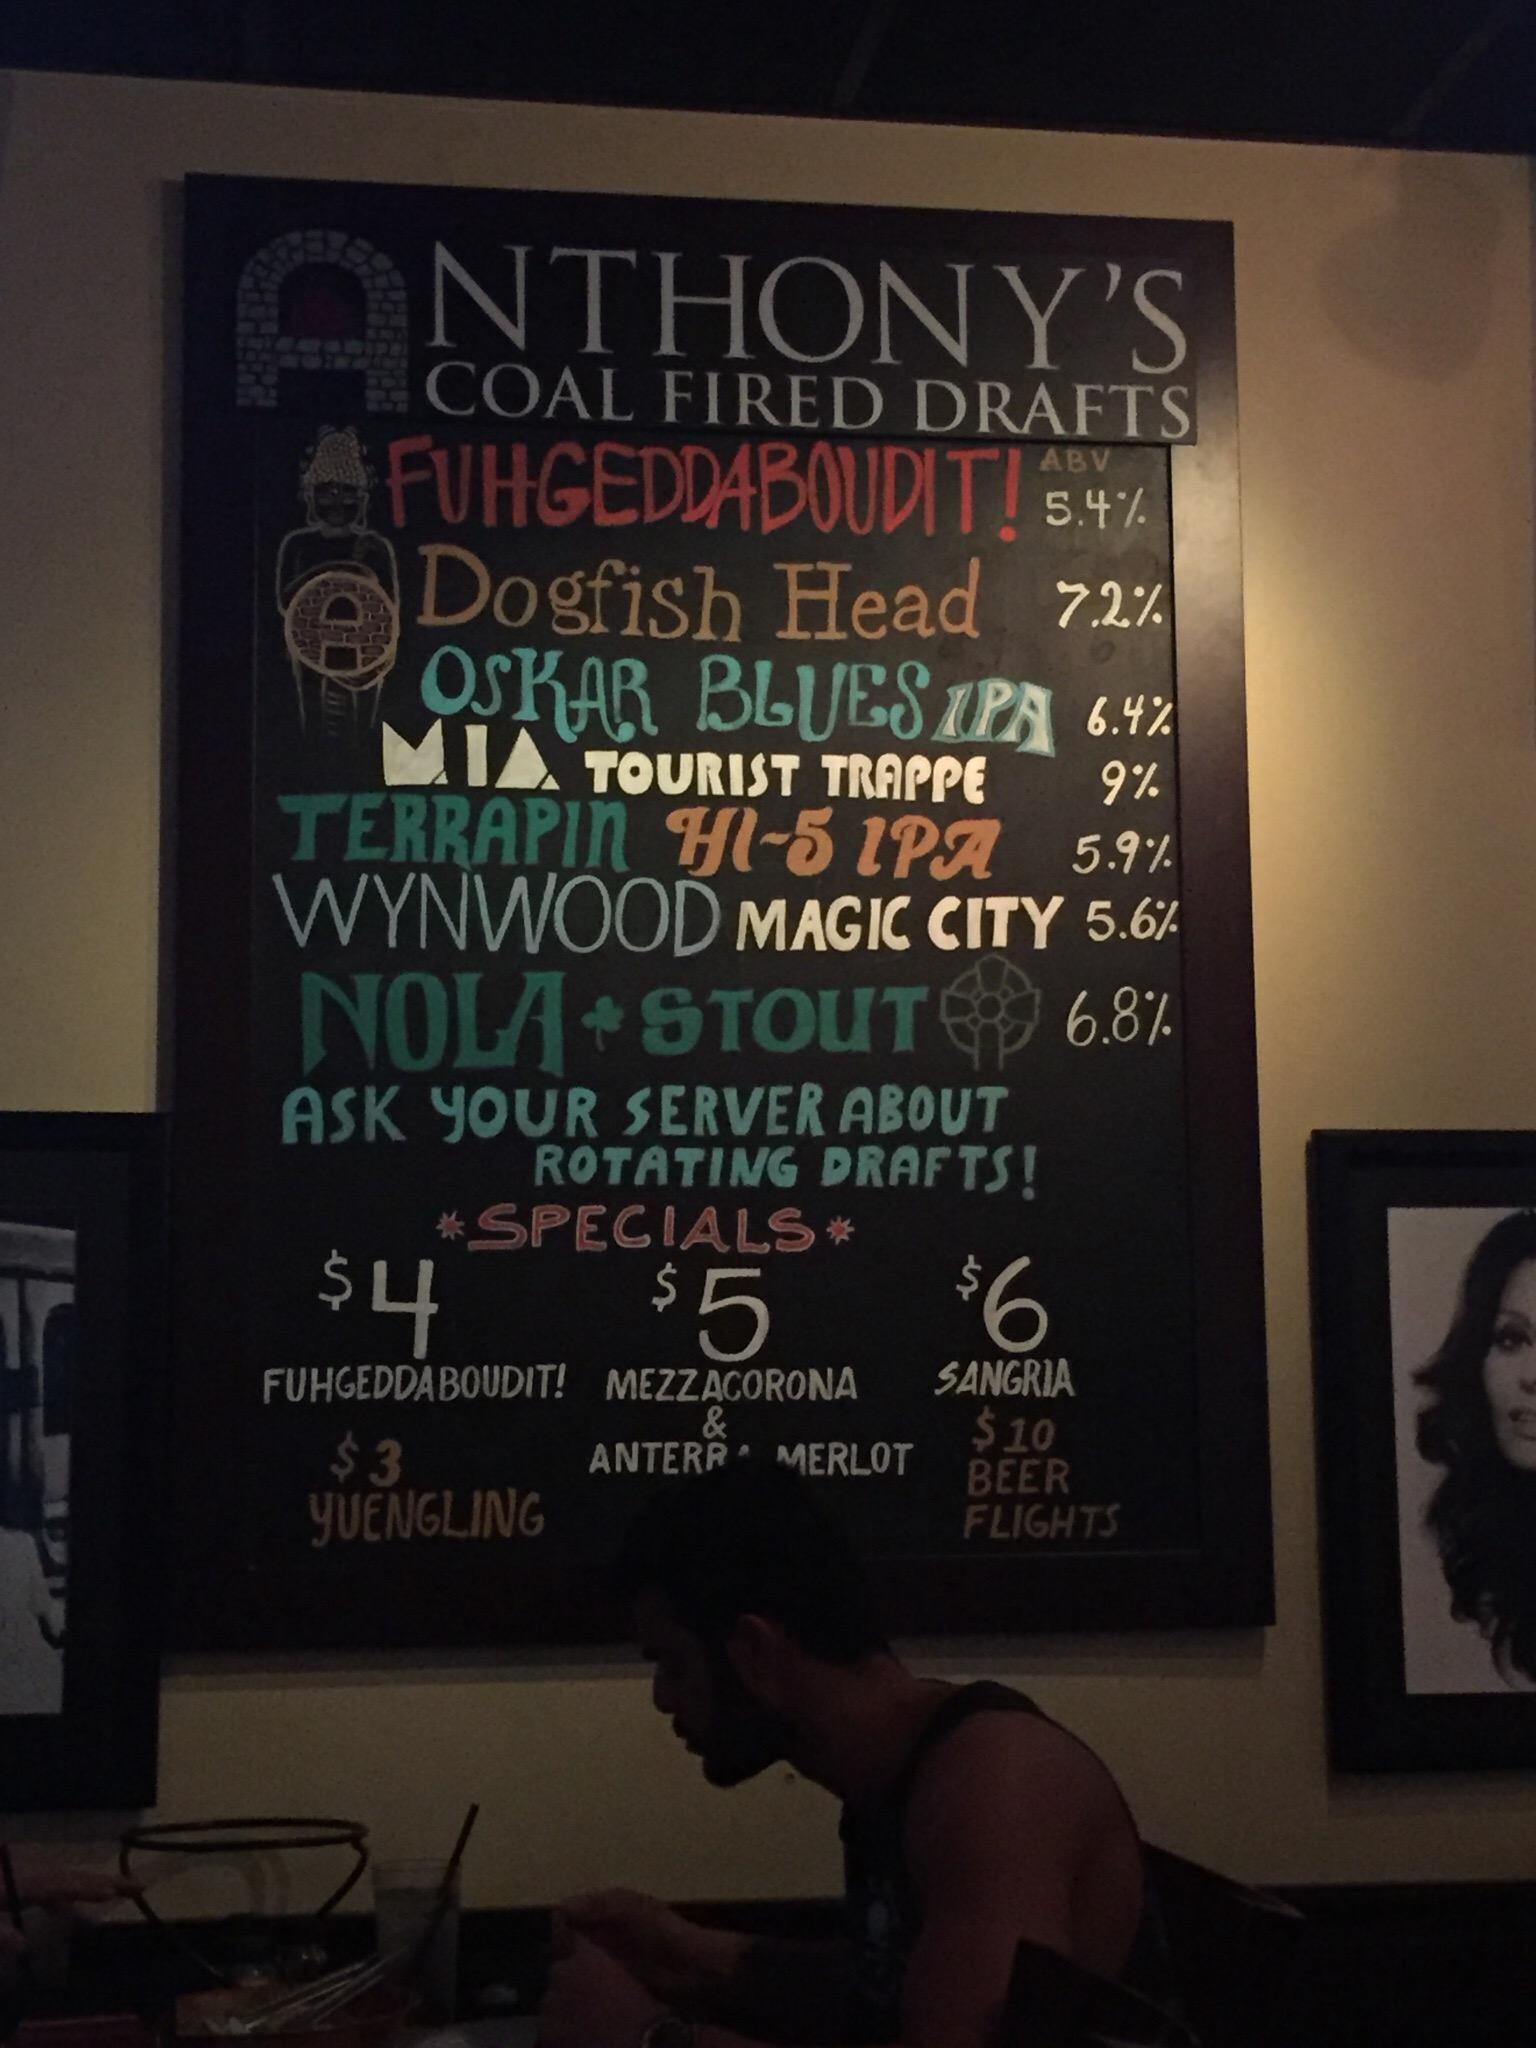 ANTHONY'S
COAL FIRED DRAFTS
FUHGEDDABOUDIT! ABV 5.4%
Dogfish Head 7.2%
OSKAR BLUES IPA 6.4%
MIA TOURIST TRAPPE 9%
TERRAPIN HI-5 IPA 5.9%
WYNWOOD MAGIC CITY 5.6%
NOLA STOUT 6.8%
ASK YOUR SERVER ABOUT
ROTATING DRAFTS!
*SPECIALS*
$4
FUHGEDDABOUDIT!
$3
YUENGLING
$5
MEZZACORONA
&
MERLOT
$6
SANGRIA
$10
BEER
FLIGHTS